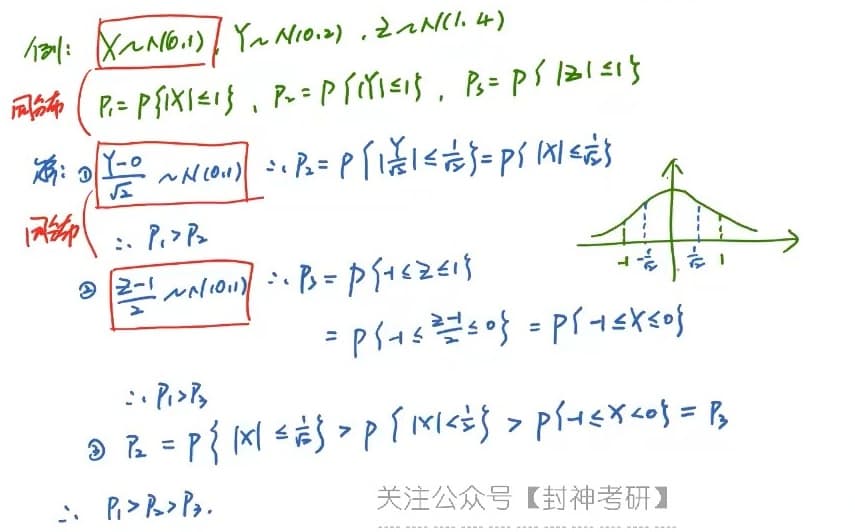 例: X~N(0,1), Y~N(0,2), Z~N(1,4)
同分布
P₁=P{|X|≤1}, P₂=P{|Y|≤1}, P₃=P{|Z|≤1}
① (Y-0)/√2 ~N(0,1) ∴P₂=P{|Y/√2|≤1/√2}=P{|X|≤1/√2}
同分布
∴ P₁>P₂
-1 -1/√2 1/√2 1
② (Z-1)/2 ~N(0,1) ∴P₃=P{-1≤Z≤1}
=P{-1≤(Z-1)/2≤0}=P{-1≤X≤0}
∴P₁>P₃
③ P₂=P{|X|≤1/√2}>P{|X|<1/2}>P{-1≤X<0}=P₃
∴ P₁>P₂>P₃.
关注公众号【封神考研】